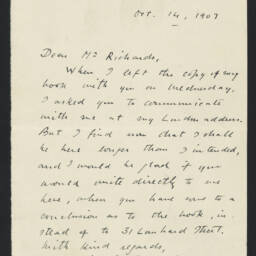 Oct. 14, 1907
Dear Mr Richards,
When I left the copy of my
book with you on Wednesday,
I asked you to communicate
with me at my London address.
But I find now that I shall
be here longer than I intended,
and I would be glad if you
would write directly to me
here, when you have come to a
conclusion as to the book, in-
stead of to 31 Lombard Street.
With kind regards,